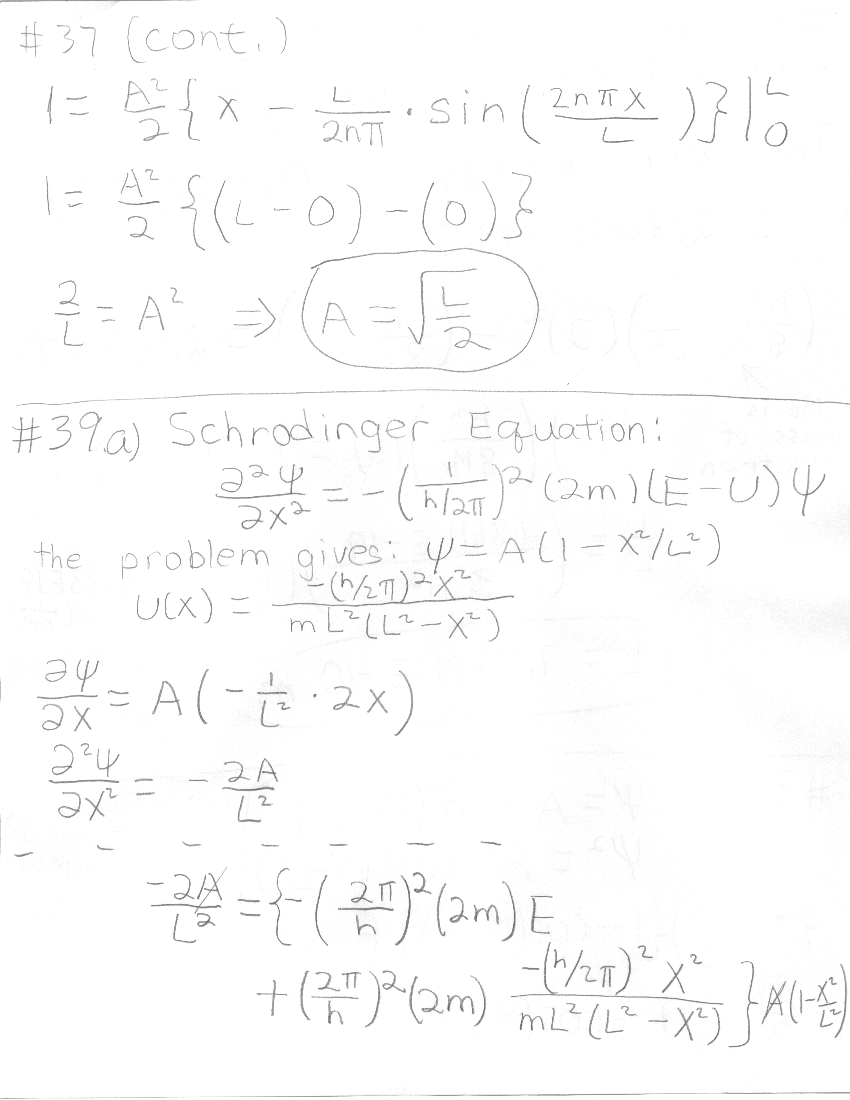 #37 (cont.)
1 = A²/2 { x - L/2nπ · sin( 2nπx/L ) } |₀ᴸ
1 = A²/2 {(L - 0) - (0)}
2/L = A² ⇒ A = √(L/2)
#39.a) Schrodinger Equation:
∂²ψ/∂x² = -( 1/(h/2π) )² (2m)(E - U)ψ
the problem gives: ψ = A(1 - x²/L²)
U(x) = -(h/2π)²x² / mL²(L² - x²)
∂ψ/∂x = A( - 1/L² · 2x )
∂²ψ/∂x² = - 2A/L²
- - - - - - -
-2A/L² = { -( 2π/h )² (2m) E
+ ( 2π/h )² (2m) -(h/2π)² x² / mL²(L² - x²) } A(1 - x²/L²)